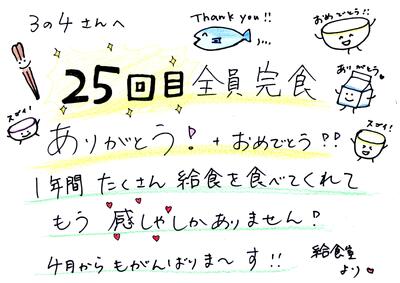 3の4さんへ
Thank you!!
おめでとう!!
25回目 全員完食
ありがとう
スゴイ!
ありがとう! + おめでとう!!
スゴイ!
1年間 たくさん 給食を食べてくれて
もう 感しゃしかありません!
4月から もがんばりま〜す!!
給食室
より